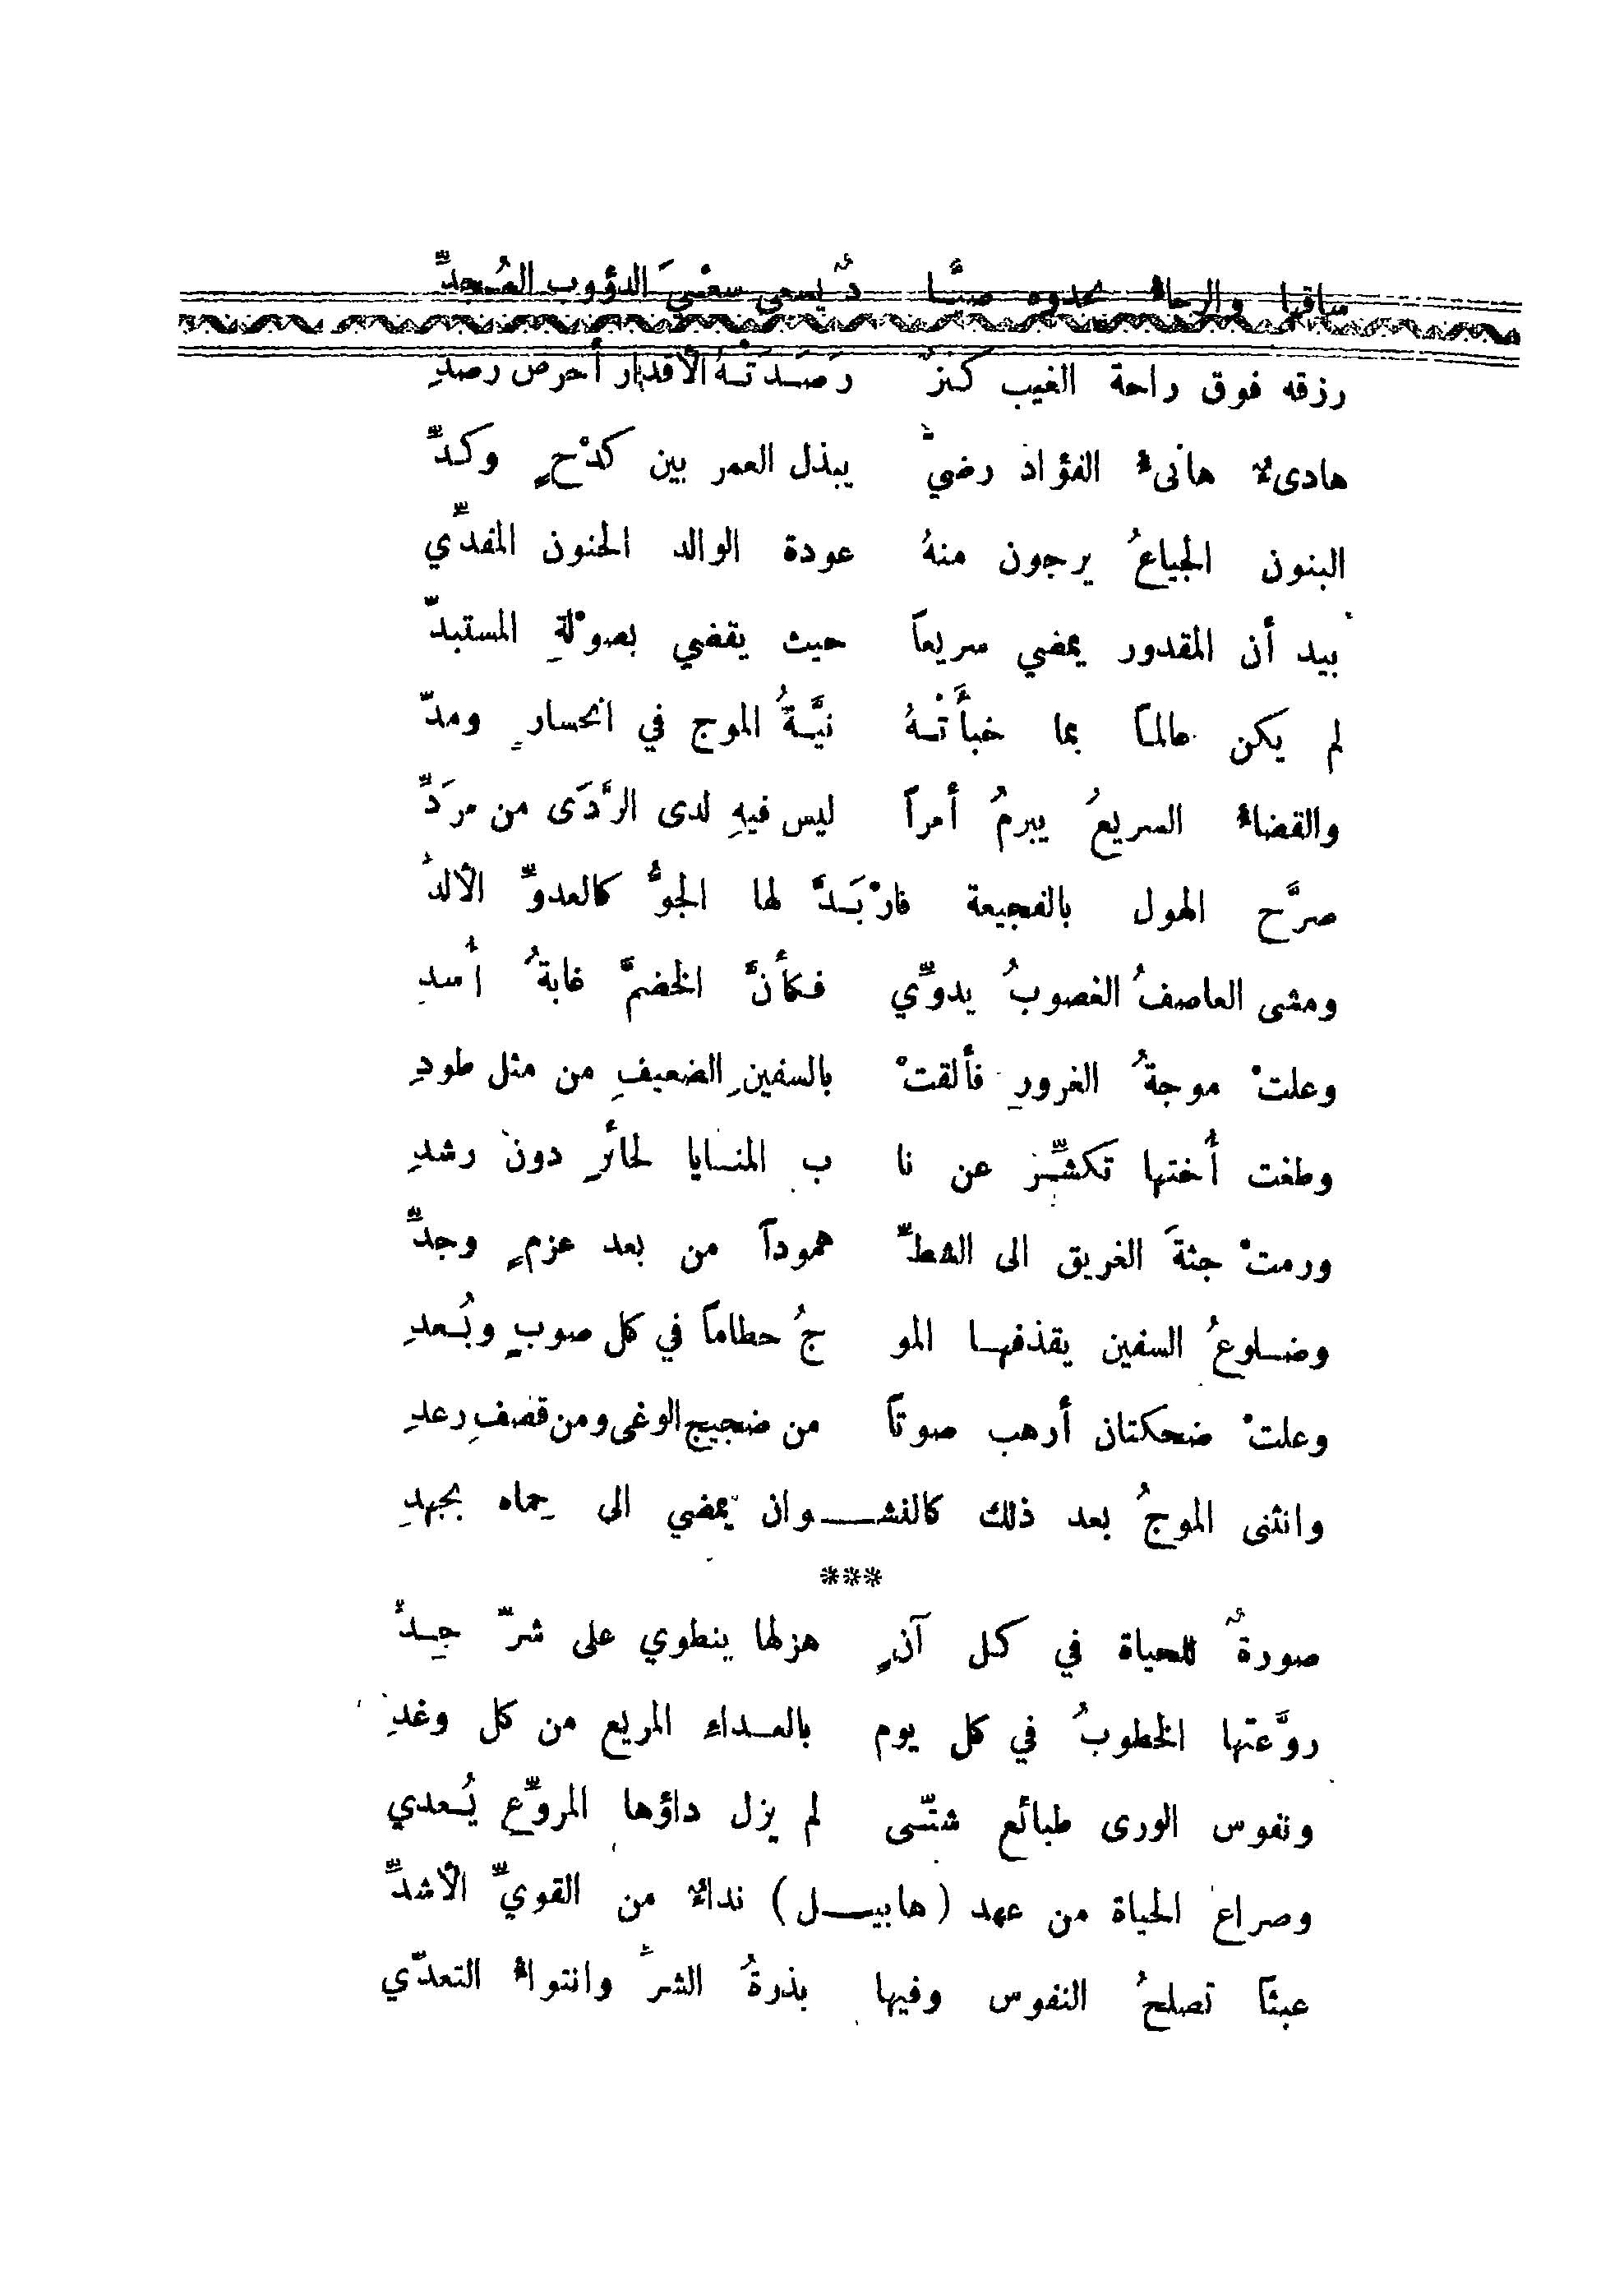 ساقها والرجاءُ يحدوه صيَّا دٌ يسعى سعْيَ الدؤوب المُجدِّ
رزقه فوق راحة الغيب كنزٌ رَصَدَتْهُ الأقدار أحرص رصدِ
هادىءٌ هانىءُ الفؤاد رضيٌّ يبذل العمر بين كدْحٍ وكدِّ
البنون الجياعُ يرجون منهُ عودة الوالد الحنون المفدِّي
بيد أن المقدور يمضي سريعاً حيث يقضي بصوْلةِ المستبدّ
لم يكن عالماً بما خبأَتْهُ نيَّةُ الموج في انحسارٍ ومدّ
والقضاءُ السريعُ يبرمُ أمراً ليس فيهِ لدى الرَّدَى من مرَدِّ
صرَّح الهول بالفجيعة فارْبَدَّ لها الجوُّ كالعدوِّ الألدّ
ومشى العاصفُ الغصوبُ يدوِّي فكأنَّ الخضمَّ غابةُ أُسدِ
وعلتْ موجةُ الغرورِ فألقتْ بالسفينِ الضعيفِ من مثل طودِ
وطغت أُختها تكشِّز عن نا ب المنايا لحائرٍ دون رشدِ
ورمتْ جثةَ الغريق الى الشطِّ هموداً من بعد عزمٍ وجدِّ
وضلوعُ السفين يقذفها المو جُ حطاماً في كل صوبٍ وبُعدِ
وعلتْ ضحكتان أرهب صوتاً من ضجيج الوغى ومن قصفِ رعدِ
وانثنى الموجُ بعد ذلك كالنشوان يمضي الى حِماه بجهدِ
***
صورةٌ للحياة في كل آنٍ هزلها ينطوي على شرّ جِدّ
روَّعتها الخطوبُ في كل يوم بالعداءِ المريع من كل وغدِ
ونفوس الورى طبائع شتّى لم يزل داؤها المروِّع يُعدي
وصراع الحياة من عهد (هابيل) نداءٌ من القويِّ الأشدِّ
عبثاً تصلحُ النفوس وفيها بذرةُ الشرّ وانتواءُ التعدّي